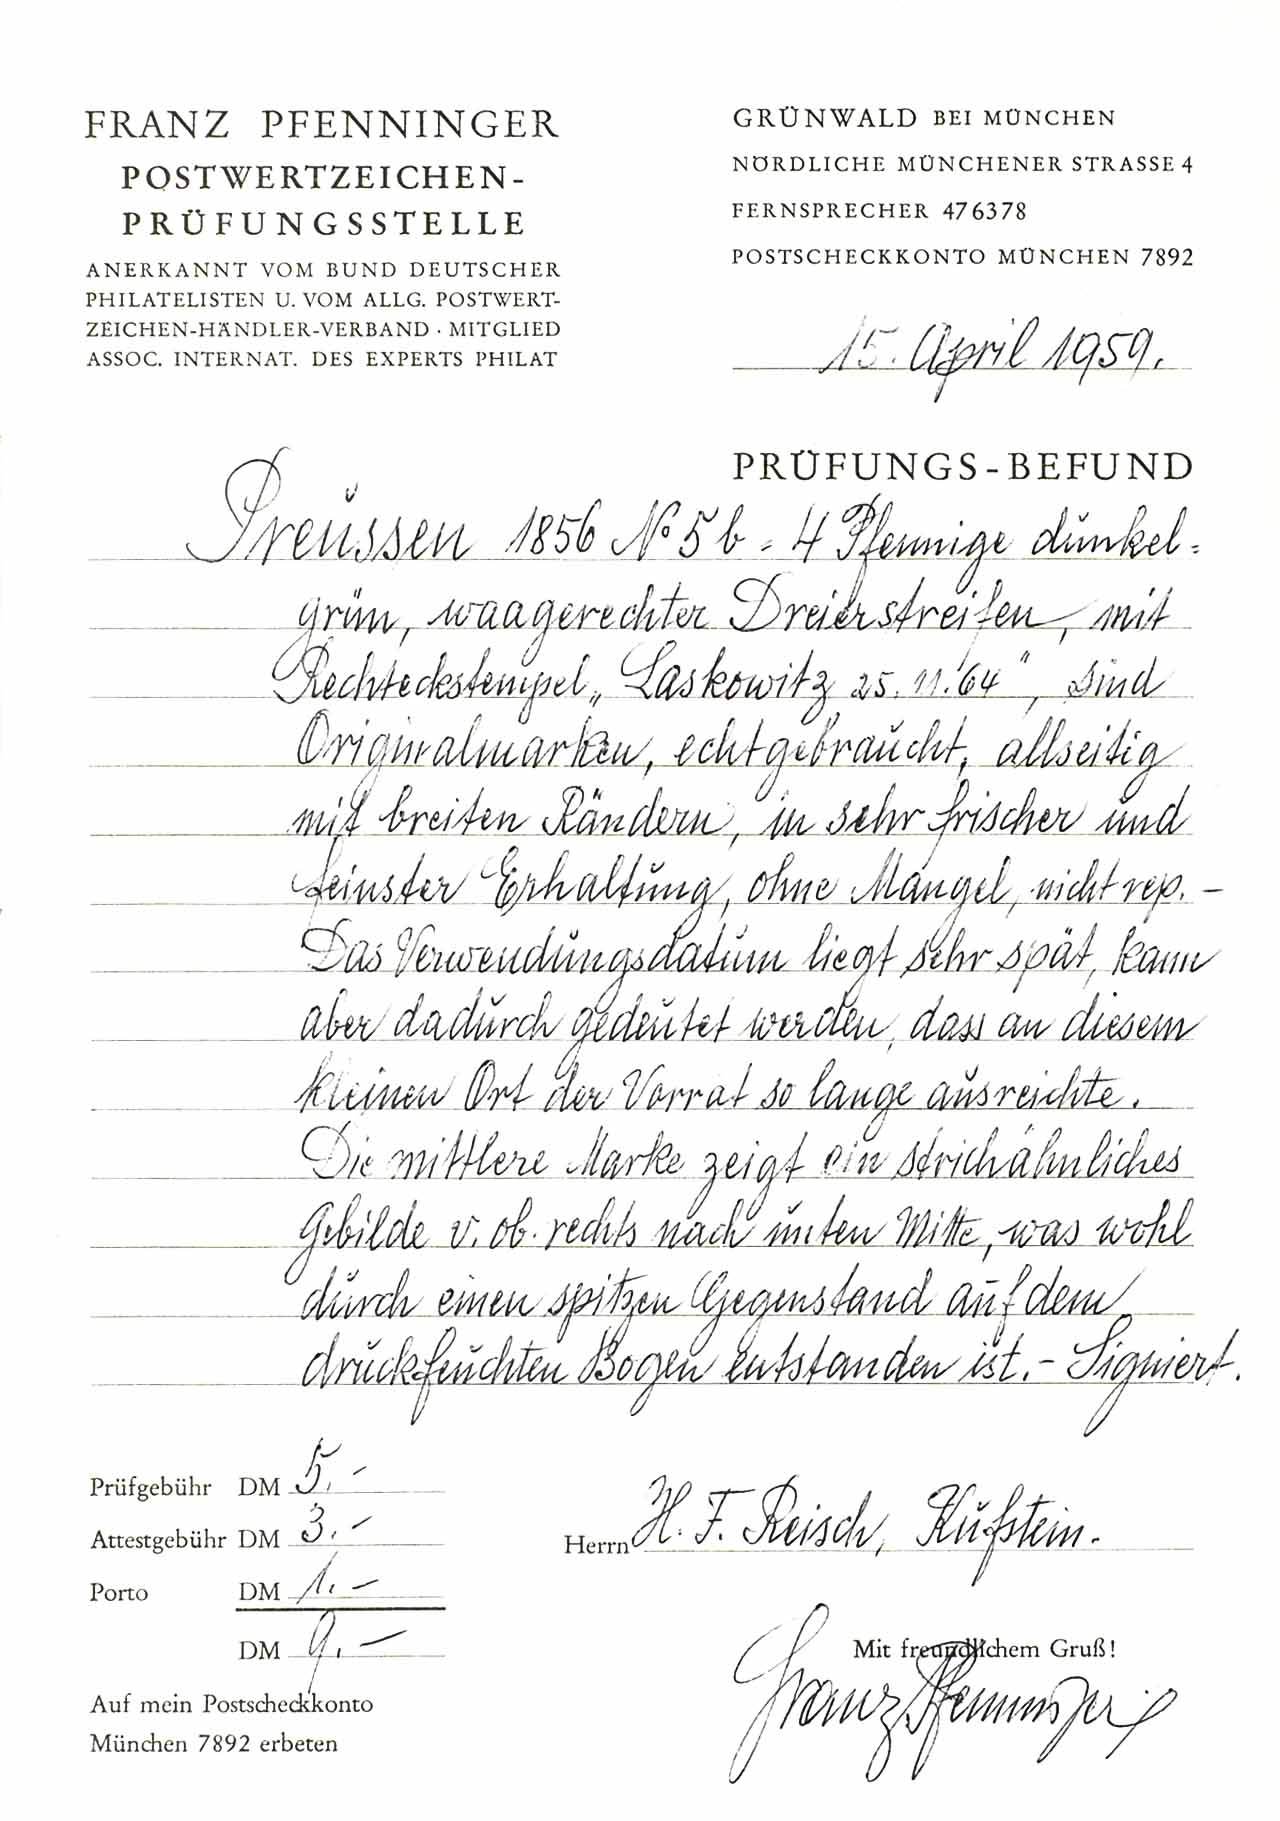 FRANZ PFENNINGER
POSTWERTZEICHEN-
PRÜFUNGSSTELLE
ANERKANNT VOM BUND DEUTSCHER
PHILATELISTEN U. VOM ALLG. POSTWERT-
ZEICHEN-HÄNDLER-VERBAND · MITGLIED
ASSOC. INTERNAT. DES EXPERTS PHILAT
GRÜNWALD BEI MÜNCHEN
NÖRDLICHE MÜNCHENER STRASSE 4
FERNSPRECHER 476378
POSTSCHECKKONTO MÜNCHEN 7892
15. April 1959.
PRÜFUNGS-BEFUND
Preussen 1856 No 5 b - 4 Pfennige dunkel=
grün, waagerechter Dreierstreifen, mit
Rechteckstempel „Laskowitz 25.11.64", sind
Originalmarken, echt gebraucht, allseitig
mit breiten Rändern, in sehr frischer und
feinster Erhaltung, ohne Mängel, nicht rep. -
Das Verwendungsdatum liegt sehr spät, kann
aber dadurch gedeutet werden, dass an diesem
kleinen Ort der Vorrat so lange ausreichte.
Die mittlere Marke zeigt ein strichähnliches
Gebilde v. ob. rechts nach unten Mitte, was wohl
durch einen spitzen Gegenstand auf dem
druckfeuchten Bogen entstanden ist. - Signiert.
Prüfgebühr DM 5.-
Attestgebühr DM 3.-
Porto DM 1.-
DM 9.-
Auf mein Postscheckkonto
München 7892 erbeten
Herrn H. F. Reisch, Kufstein.
Mit freundlichem Gruß!
Franz Pfenninger